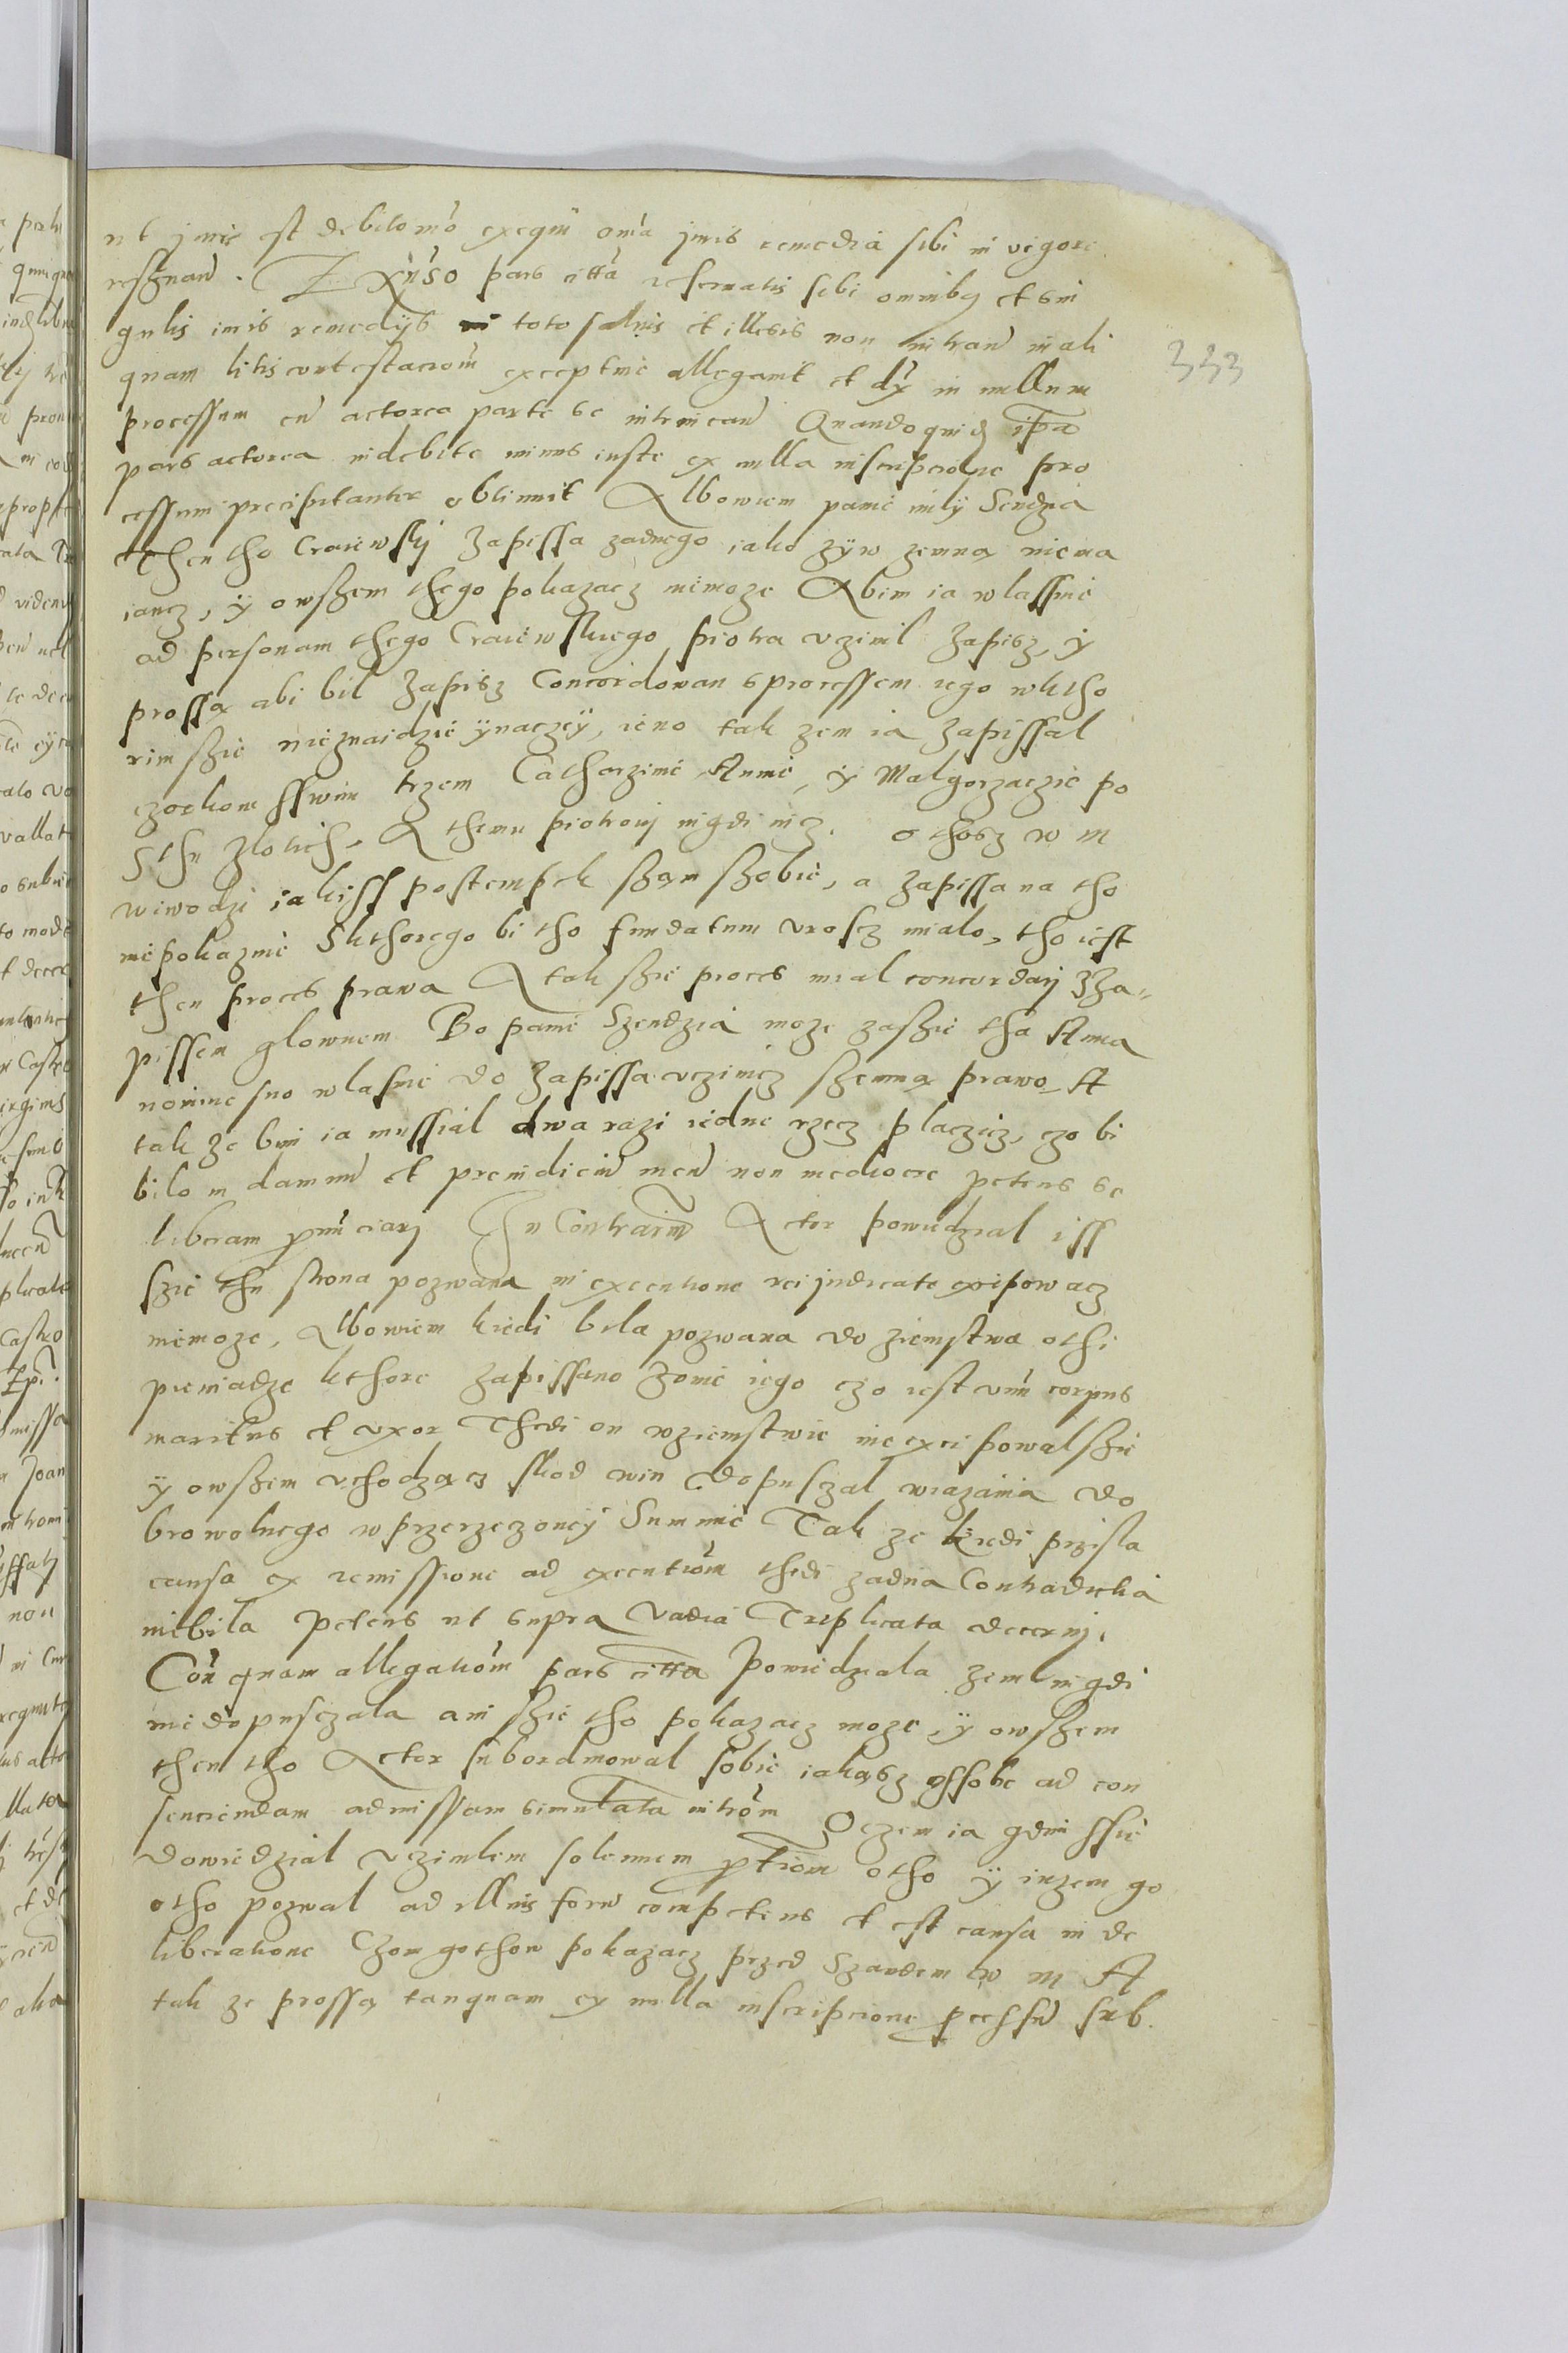 ut juris est debitomo exequi omia juris remedia sibi in vigore
reserwand. Ex Xuerso pars citta reservatis sibi omnibus et sin
gulis iuris remedijs in toto salvis et illesis non intrand in ali
quam litis contestaciom exceptive allegavit et dy in nullum
processum cu actorea parte se intricand Quandoquid ipa
pars actorea indebite minus iuste ex nulla inscripcione pro
cessum precipitanter obtinuit Albowiem panie mily Sendzia
then tho Craiewskij Zapissa zadnego iako zyw zemną niema
iancz, ÿ owszem thego pokazacz niemoze Abim ia wlassnie
ad personam thego Craiewskiego Piotra vczinil Zapisz, ÿ
prossą abi bil Zapisz Concordowan sprocessem iego wktho
rim szie nieznaidzie ÿnaczeÿ, ieno tak zem ia Zapissal
czorkom sswim trzem Catharzinie Annie, ÿ Malgorzaczie po
Sthu zlotich, A themu piotrowj nigdi nicz. othosz w m
wiwodzi iakiss postempek szam szobie, a Zapissa na tho
niepokaznie Skthorego bi tho fundatum vrosz mialo, tho iest
then proces prawa A tak szie proces mial concordarj Zza,
pissem glownem Bo panie Szendzia moze zaszie tha Anna
nomine suo wlasnie do Zapissa vczinicz szemną prawo, A
tak ze bim ia mussial dwa razi iedne rzecz placzicz, czo bi
bilo in damnu et preiudiciu meu non mediocre petens se
liberam pnuciarj In Contrarium Actor powiedzial iss
szie thu strona pozwana in executione rei judicate excipowacz
niemoze, Albowiem kiedi bila pozwana do ziemstwa othi
pieniadze kthore zapissano zonie iego czo iest unu corpus
maritus et uxor Thedi on wziemstwie nie excipowal szie
ÿ owszem vchodząc skod win dopusczal wiazania do
browolnego wprzerzeczoneÿ Summie Tak ze kiedi przisla
causa ex remissione ad executiom thedi zadna Contradictia
niebila petens ut supra Vadia Triplicata decernj.
Con quam allegatiom pars citta powiedziala zem nigdi
niedopusczala ani szie tho pokazacz moze, ÿ owszem
then tho Actor subordinowal sobie iakąsz ossobe ad con
senciendam admissam simulata introm Oczem ia gdim ssie
dowiedzial vczinilem solennem ptiom otho ÿ iuzem go
otho pozwal ad illius foru competens et est causa in de
liberatione Czom gothow pokazacz przed Szandem w m A
tak ze prossą tanquam ex nulla inscripcione pcessu sub.
333